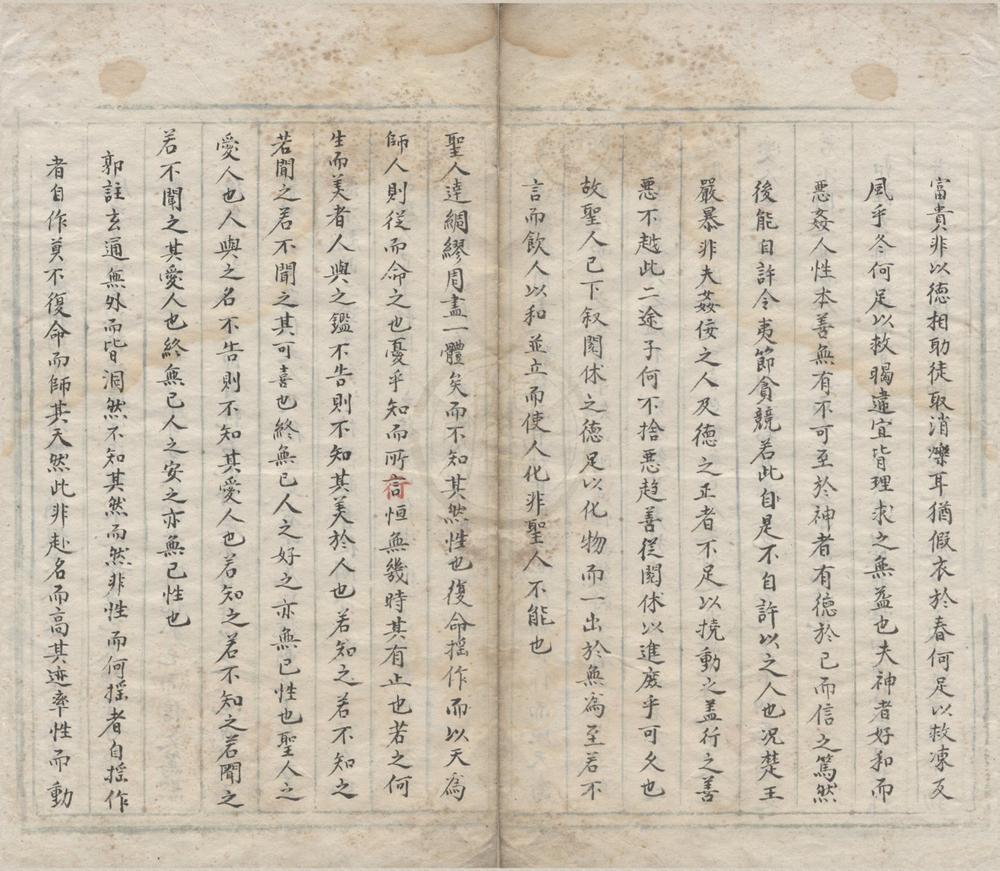 富貴非以德相助徒取消爍耳猶假衣於春何足以救凍反
風乎冬何足以救暍違宜背理求之無益也夫神者好和而
惡姦人性本善無有不可至於神者有德於己而信之篤然
後能自許今夷節貪競若此自是不自許以之人也况楚王
嚴暴非夫姦佞之人及德之正者不足以撓動之盖行之善
惡不越此二途子何不捨惡趋善從閱休以進庶乎可久也
故聖人已下叙閱休之德足以化物而一出於無為至若不
言而飲人以和並立而使人化非聖人不能也
聖人逹綢繆周盡一體矣而不知其然性也復命揺作而以天為
師人則從而命之也憂乎知而所行恒無幾時其有止也若之何
生而美者人與之鑑不告則不知其美於人也若知之若不知之
若聞之若不聞之其可喜也終無已人之好之亦無已性也聖人之
愛人也人與之名不告則不知其愛人也若知之若不知之若聞之
若不聞之其愛人也終無已人之安之亦無已性也
郭註玄通無外而皆洞然不知其然而然非性而何揺者自揺作
者自作莫不復命而師其天然此非赴名而高其迹率性而動